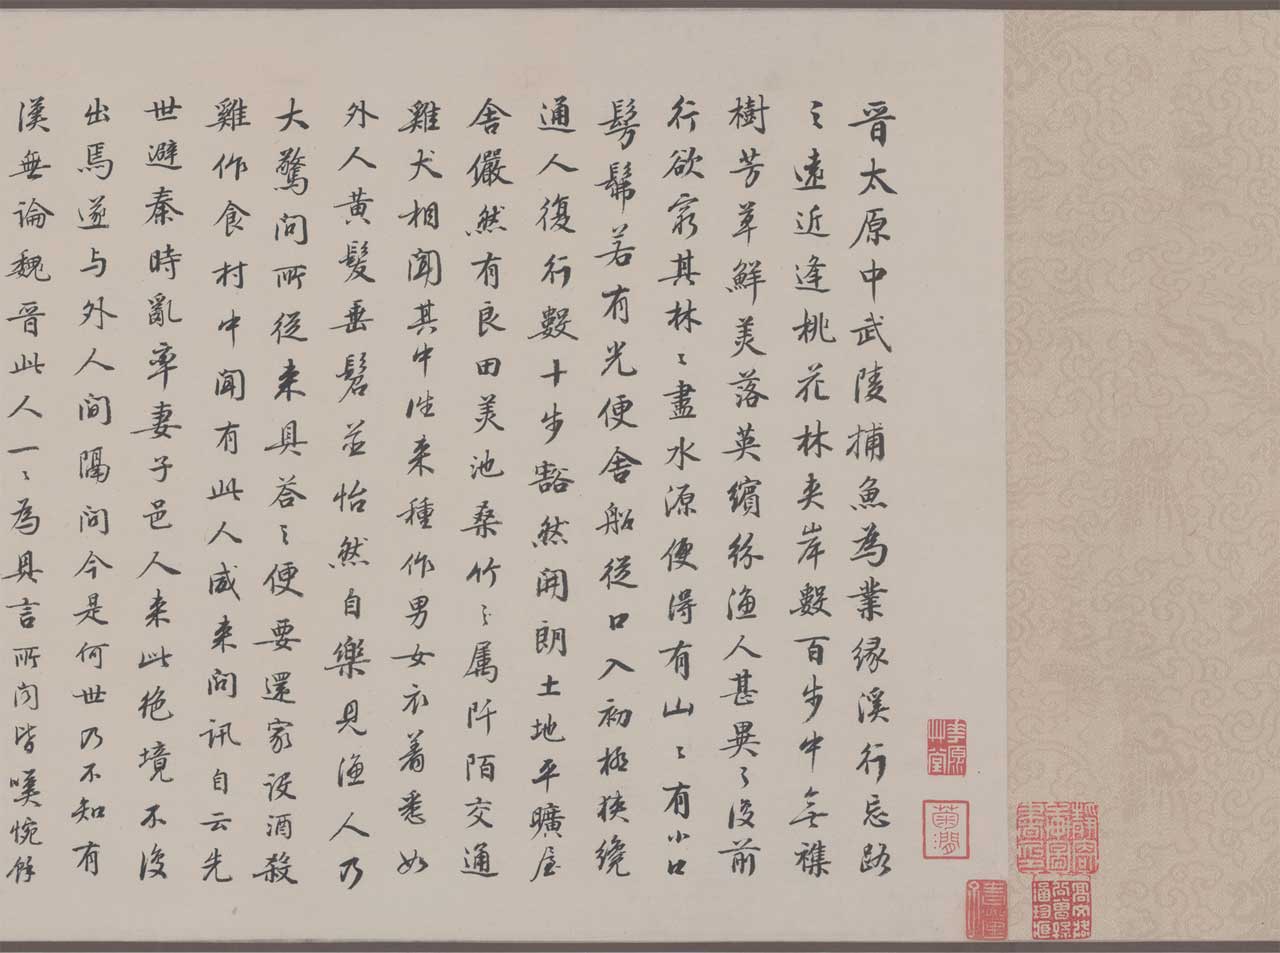 晉太原中武陵捕魚為業緣溪行忘路
〻遠近逢桃花林夾岸數百步中無襍
樹芳草鮮美落英繽紛漁人甚異〻復前
行欲窮其林〻盡水源便得有山〻有小口
髣髴若有光便舍船從口入初極狹纔
通人復行數十步豁然開朗土地平曠屋
舍儼然有良田美池桑竹〻屬阡陌交通
雞犬相聞其中往来種作男女衣着悉如
外人黄髮垂髫並怡然自樂見漁人乃
大驚問所從来具答〻便要還家設酒殺
雞作食村中聞有此人咸来問訊自云先
世避秦時亂率妻子邑人来此絶境不復
出焉遂与外人間隔问今是何世乃不知有
漢無論魏晉此人一〻為具言所聞皆嘆惋餘
菊澗